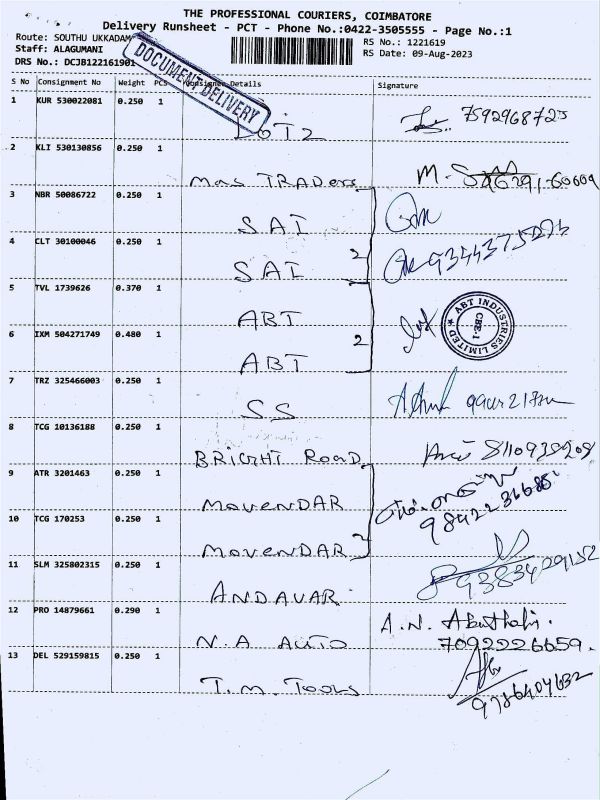 THE PROFESSIONAL COURIERS, COIMBATORE
Delivery Runsheet - PCT - Phone No.:0422-3505555 - Page No.:1
Route: SOUTHU UKKADAM
Staff: ALAGUMANI
DRS No.: DCJB122161901
RS No.: 1221619
RS Date: 09-Aug-2023
DOCUMENT DELIVERY
S No Consignment No Weight PCS Consignee Details Signature
1 KUR 530022081 0.250 1
2 KLI 530130856 0.250 1 Mas TRADers
3 NBR 50086722 0.250 1 SAI
4 CLT 30100046 0.250 1 SAI 2
5 TVL 1739626 0.370 1 ABT
ABT INDUSTRIES LIMITED
CBE-1
6 IXM 504271749 0.480 1 ABT 2
7 TRZ 325466003 0.250 1 SS
8 TCG 10136188 0.250 1 BRIGHT Road
9 ATR 3201463 0.250 1 MovenDAR
10 TCG 170253 0.250 1 MovenDAR 2 9842236685
11 SLM 325802315 0.250 1 ANDAVAR 9383429152
12 PRO 14879661 0.290 1 N.A AUTO A.N. 7092226659.
13 DEL 529159815 0.250 1 T.M. Tools 9786404632